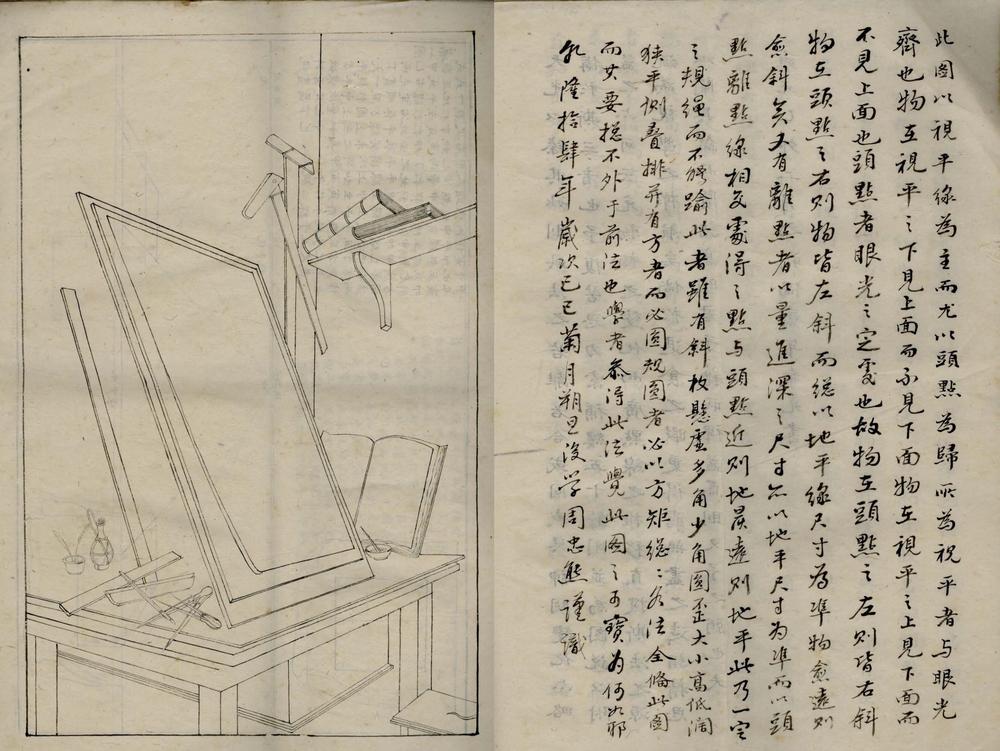 此圖以視平線為主而尤以頭點為歸所為視平者与眼光
齊也物在視平之下見上面而不見下面物在視平之上見下面而
不見上面也頭點者眼光之定處也故物在頭點之左則皆右斜
物在頭點之右則物皆左斜而總以地平線尺寸為準物愈遠則
愈斜矣又有離點者以量進深之尺寸亦以地平尺寸為準而以頭
點離點線相交處得之點与頭點近則地畏遠則地平此乃一定
之規绳而不能踰此者雖有斜枚懸虛多角少角圓歪大小高低濶
狭平側叠排并有方者而必圓規圓者必以方矩總之法全備此圖
而其要揔不外于前法也學者叅得此法覺此圖之可寶为何如邪
乹隆拾肆年歲次己巳菊月朔旦後学周忠熊謹識